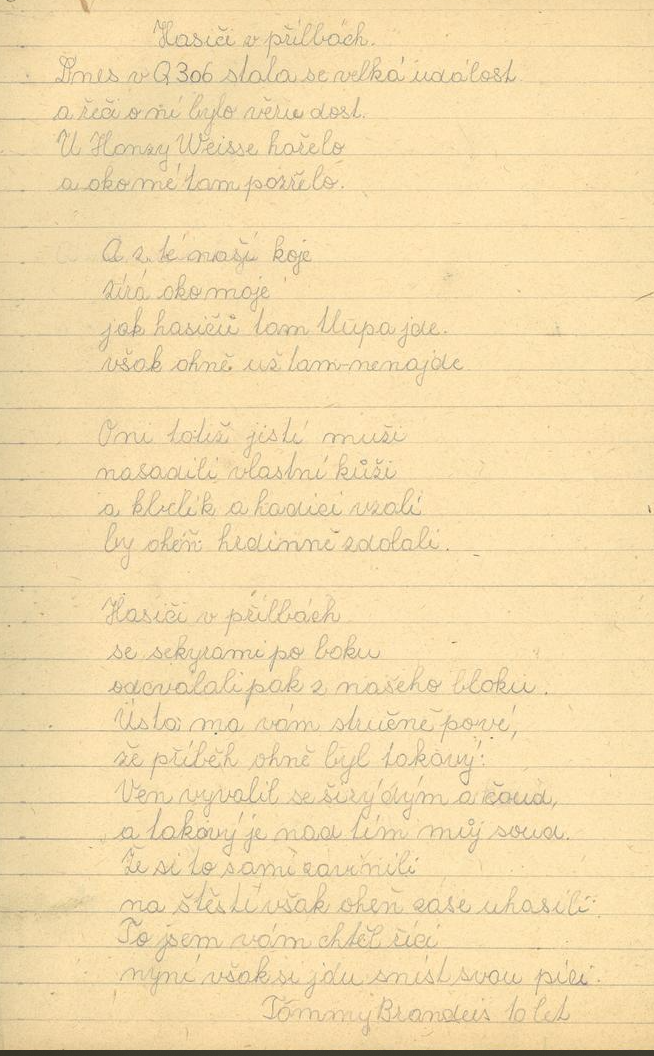 Hasiči v přílbách.
Dnes v Q 306 stala se velká událost
a řeči o ní bylo věru dost.
U Hanzy Weisse hořelo
a oko mé tam pozřelo.
A z té naší koje
zírá oko moje
jak hasičů tam tlupa jde.
však ohně už tam nenajde
Oni totiž jistí muži
nasadili vlastní kůži
a kbelík a hadici vzali
by oheň hrdinně zdolali.
Hasiči v přílbách
se sekyrami po boku
odcválali pak z našeho bloku.
Ústa má vám stručně poví,
že příběh ohně byl takový:
Ven vyvalil se širý dým a čoud,
a takový je nad tím můj soud.
Že si to sami zavinili
na štěstí však oheň zase uhasili
To jsem vám chtěl říci
nyní však si jdu sníst svou píci.
Tommy Brandeis 10 let